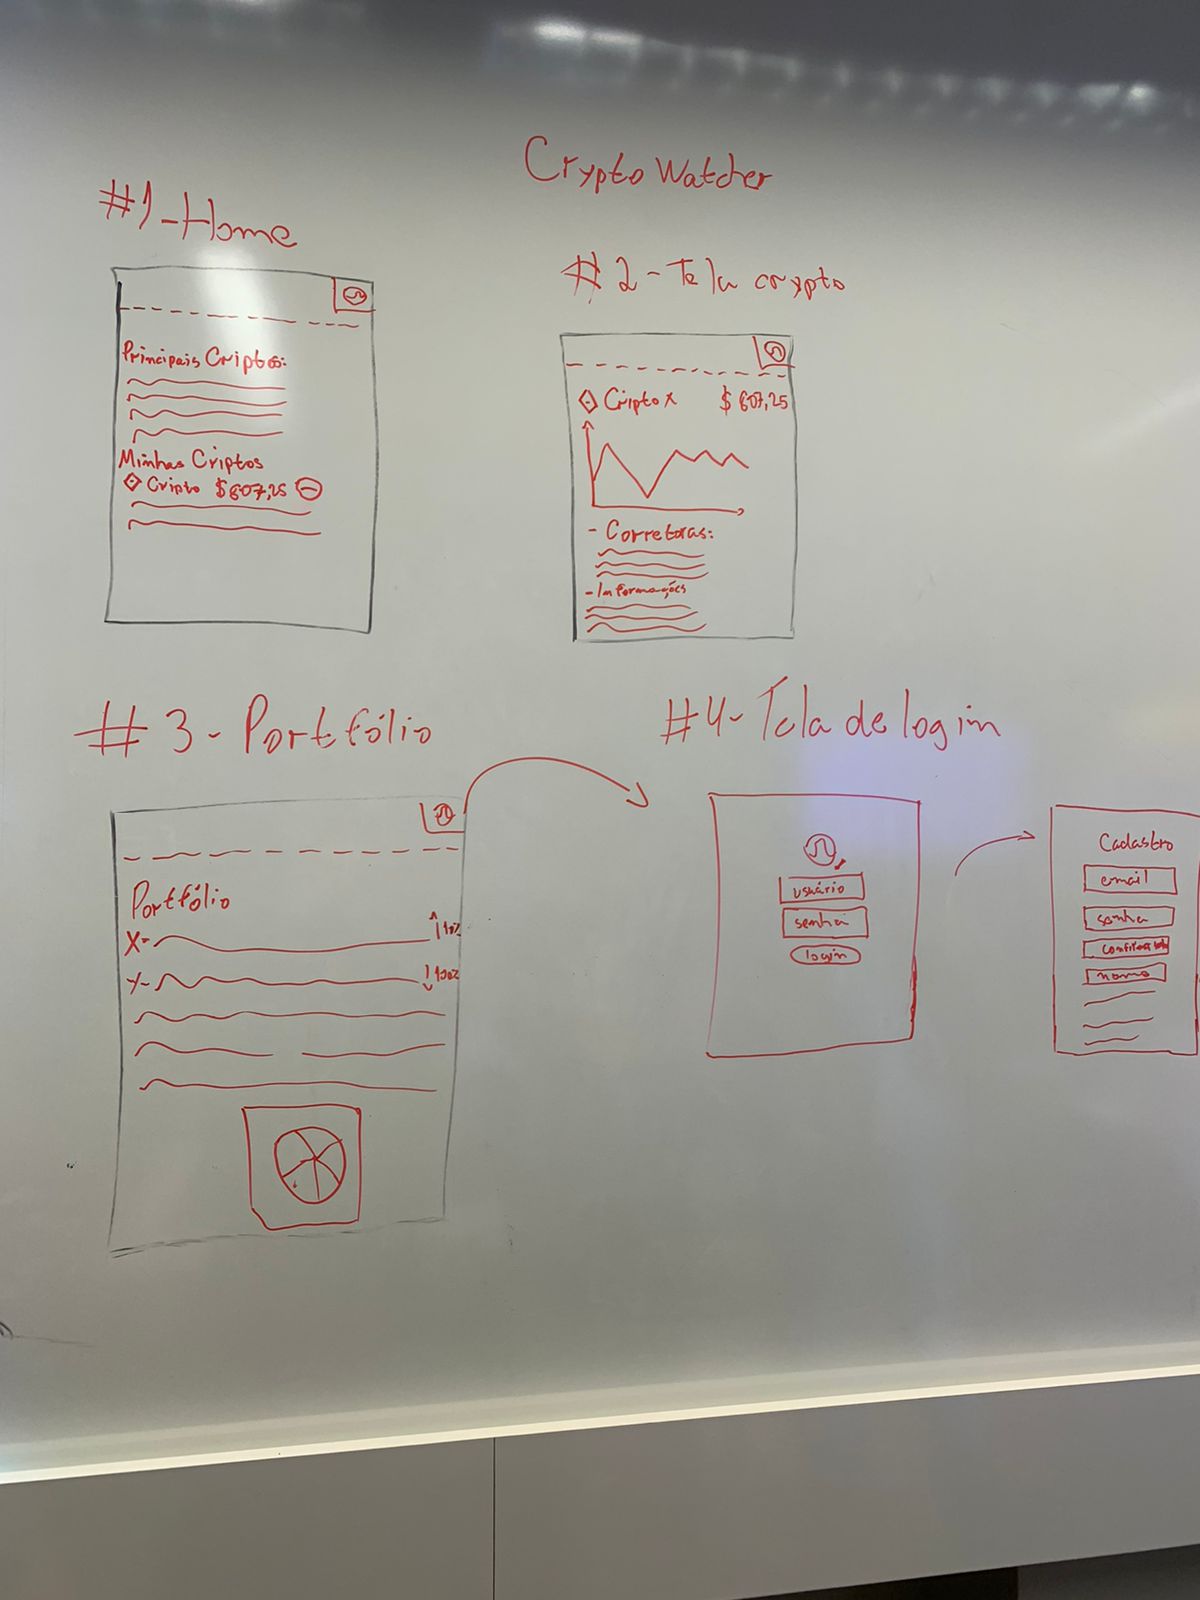 Crypto Watcher
#1-Home
Principais Criptos:
Minhas Criptos
Cripto $607,25
#2-Tela crypto
Cripto x $607,25
- Corretoras:
- Informações
#3-Portfólio
Portfólio
X-
Y-
#4-Tela de login
usuário
senha
login
Cadastro
email
senha
nome